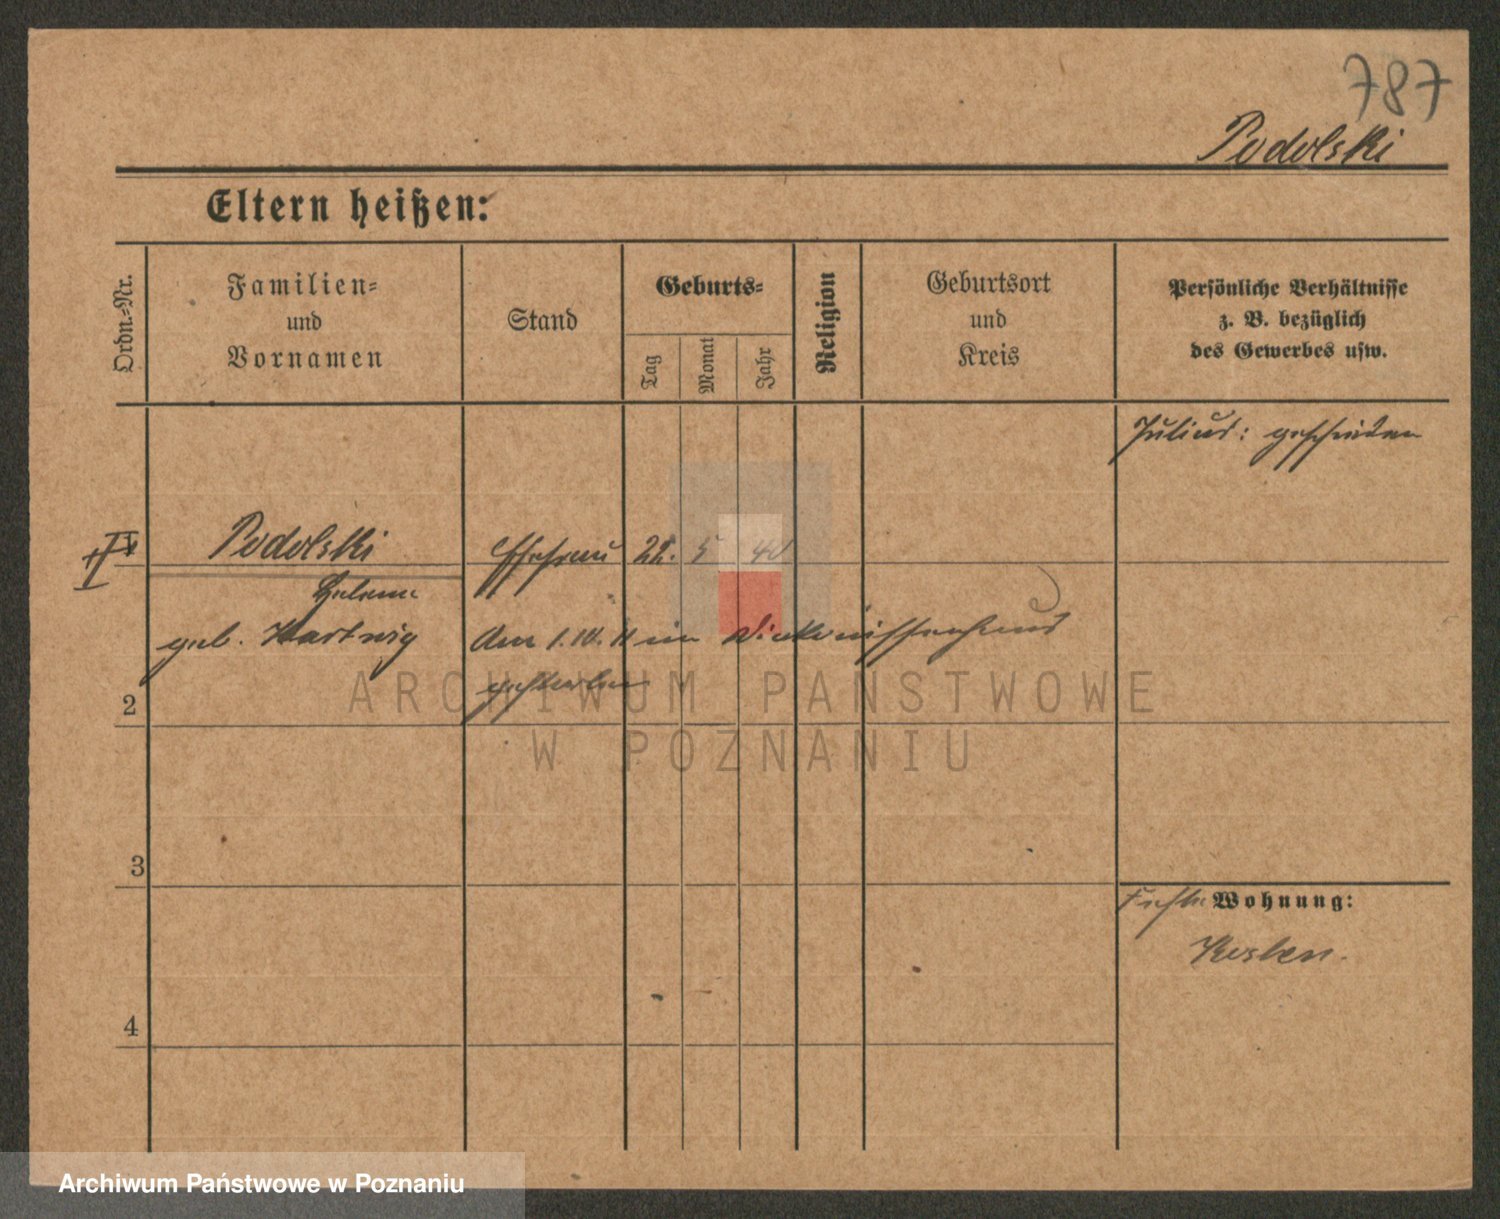 787
Podolski
Eltern heißen:
Ordn.-Nr.
Familien-
und
Vornamen
Stand
Geburts-
Tag
Monat
Jahr
Religion
Geburtsort
und
Kreis
Persönliche Verhältnisse
z. B. bezüglich
des Gewerbes usw.
Julius: geschieden
Podolski Ehefrau 22. 5 40
Helene
geb. Hartwig den 1. 10. 11 im Diakonissenhaus
gestorben
2
3
4
Wohnung:
Kosten.
ARCHIWUM PAŃSTWOWE
W POZNANIU
Archiwum Państwowe w Poznaniu